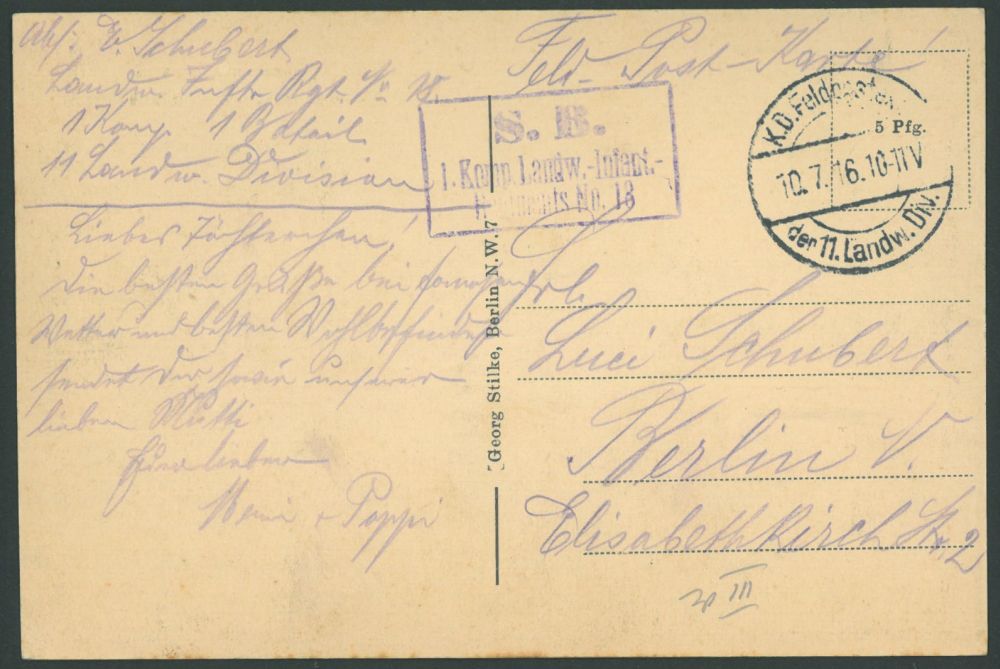 Abs: E. Schubert
Landw. Inftr. Rgt. No 18.
1 Komp. 1 Batail
11 Landw. Division
Liebes Töchterchen!
Die besten Grüße bei
Wetter und besten Wohlbefinden
sendet Dir sowie unserer
lieben Mutti
Euer lieber
Poppi
Feld-Post-Karte!
S. B.
1. Komp. Landw.-Infant.-
Regiments No. 18
K.D. Feldpostex.
10.7.16.10-11V
der 11. Landw. Div.
5 Pfg.
Georg Stilke, Berlin N.W. 7
Frl.
Luci Schubert
Berlin
Elisabethkirch Str. 2
III